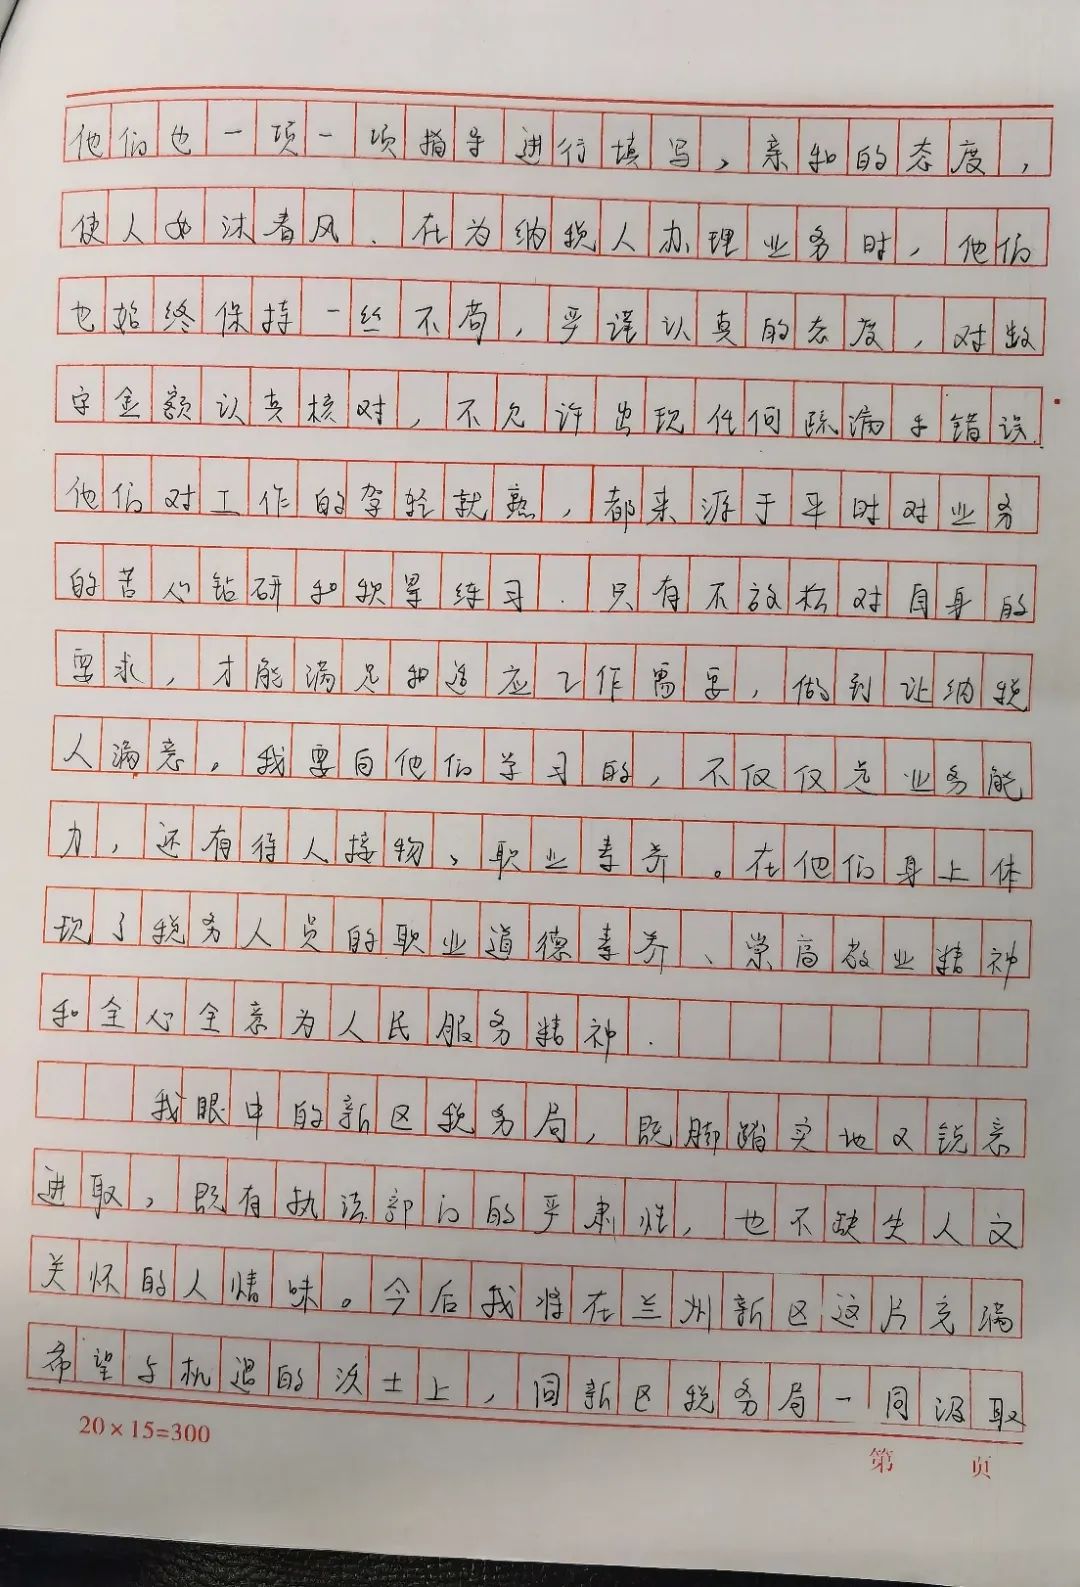 他们也一项一项指导进行填写，亲和的态度，
使人如沐春风．在为纳税人办理业务时，他们
也始终保持一丝不苟，严谨认真的态度，对数
字金额认真核对，不允许出现任何疏漏与错误．
他们对工作的驾轻就熟，都来源于平时对业务
的苦心钻研和积累练习．只有不放松对自身的
要求，才能满足和适应工作需要，做到让纳税
人满意，我要向他们学习的，不仅仅是业务能
力，还有待人接物、职业素养。在他们身上体
现了税务人员的职业道德素养、崇高敬业精神
和全心全意为人民服务精神．
我眼中的新区税务局，既脚踏实地又锐意
进取，既有执法部门的严肃性，也不缺失人文
关怀的人情味。今后我将在兰州新区这片充满
希望与机遇的沃土上，同新区税务局一同汲取
20×15=300
第 页